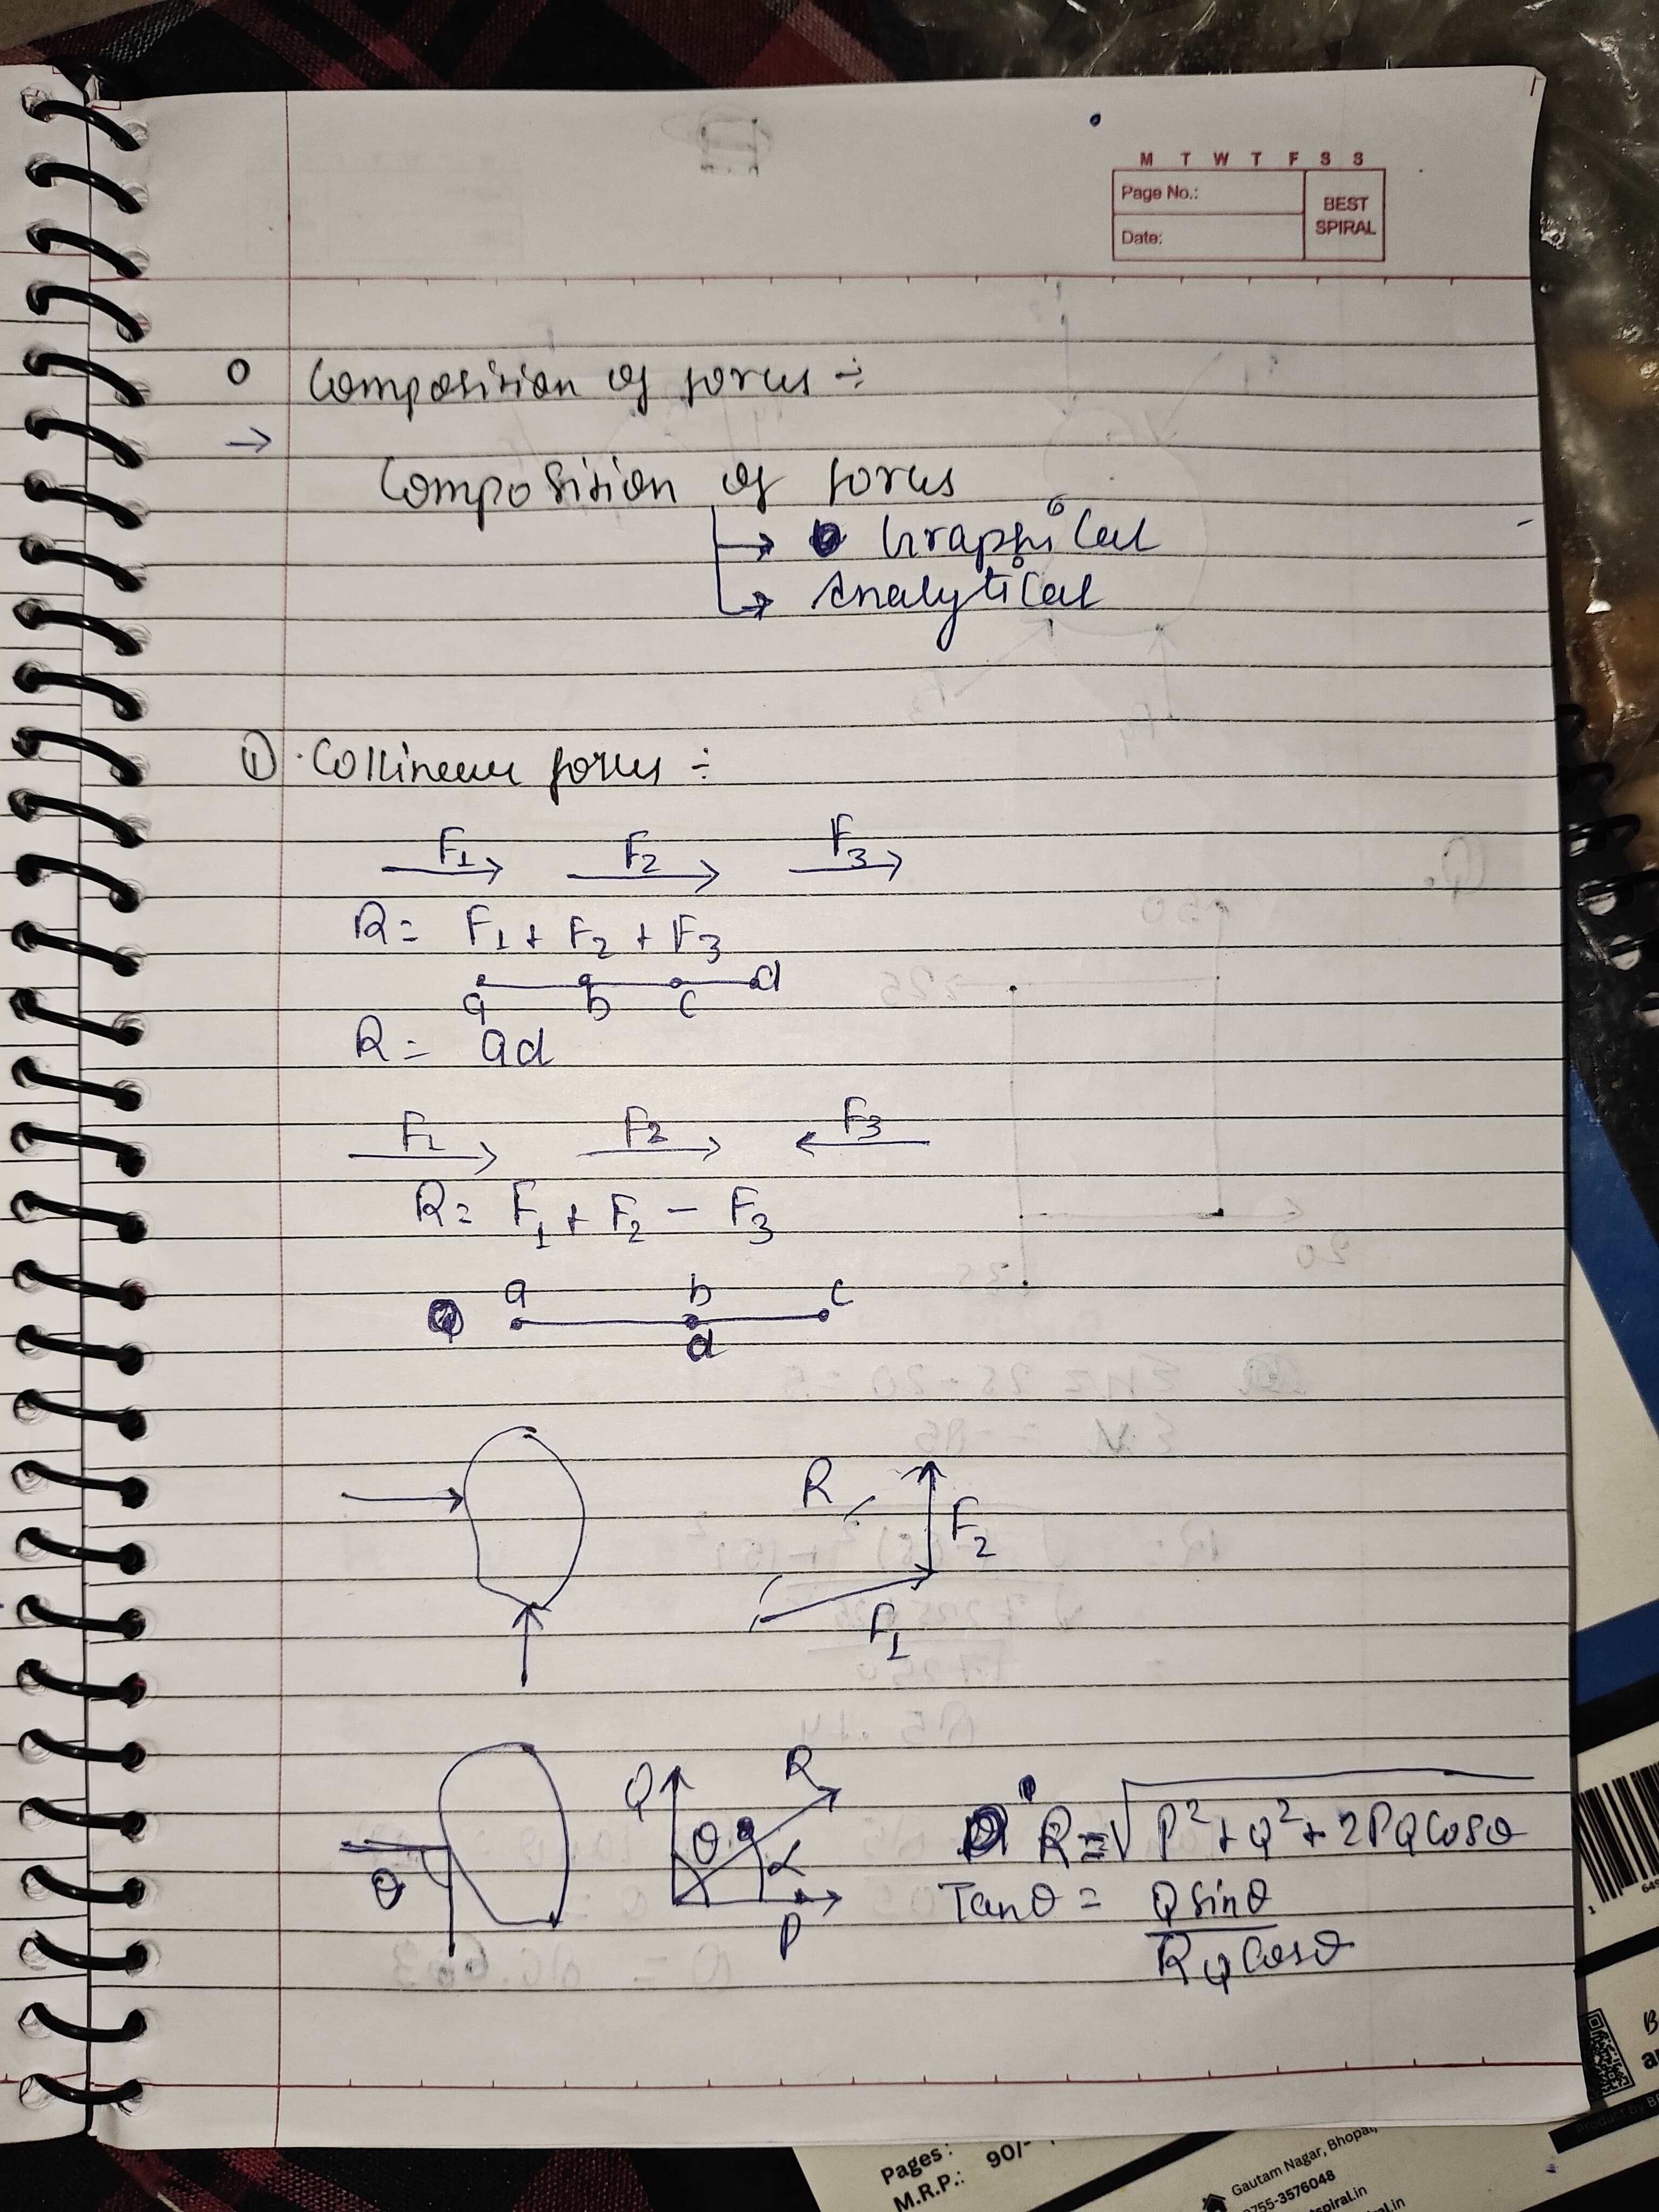 M T W T F S S
Page No.:
BEST SPIRAL
Date:
Composition of forces ÷
→
Composition of forces
→ Graphical
→ Analytical
① Collinear forces ÷
F1 F2 F3
R = F1 + F2 + F3
a b c d
R = ad
F1 F2 F3
R = F1 + F2 - F3
a b c
d
R F2
F1
Q R
θ α
θ
P
R = √P² + Q² + 2PQ Cosθ
Tanθ = Q sinθ
R Q Cosθ
Pages:
M.R.P.: 90/-
Gautam Nagar, Bhopal,
0755-3576048